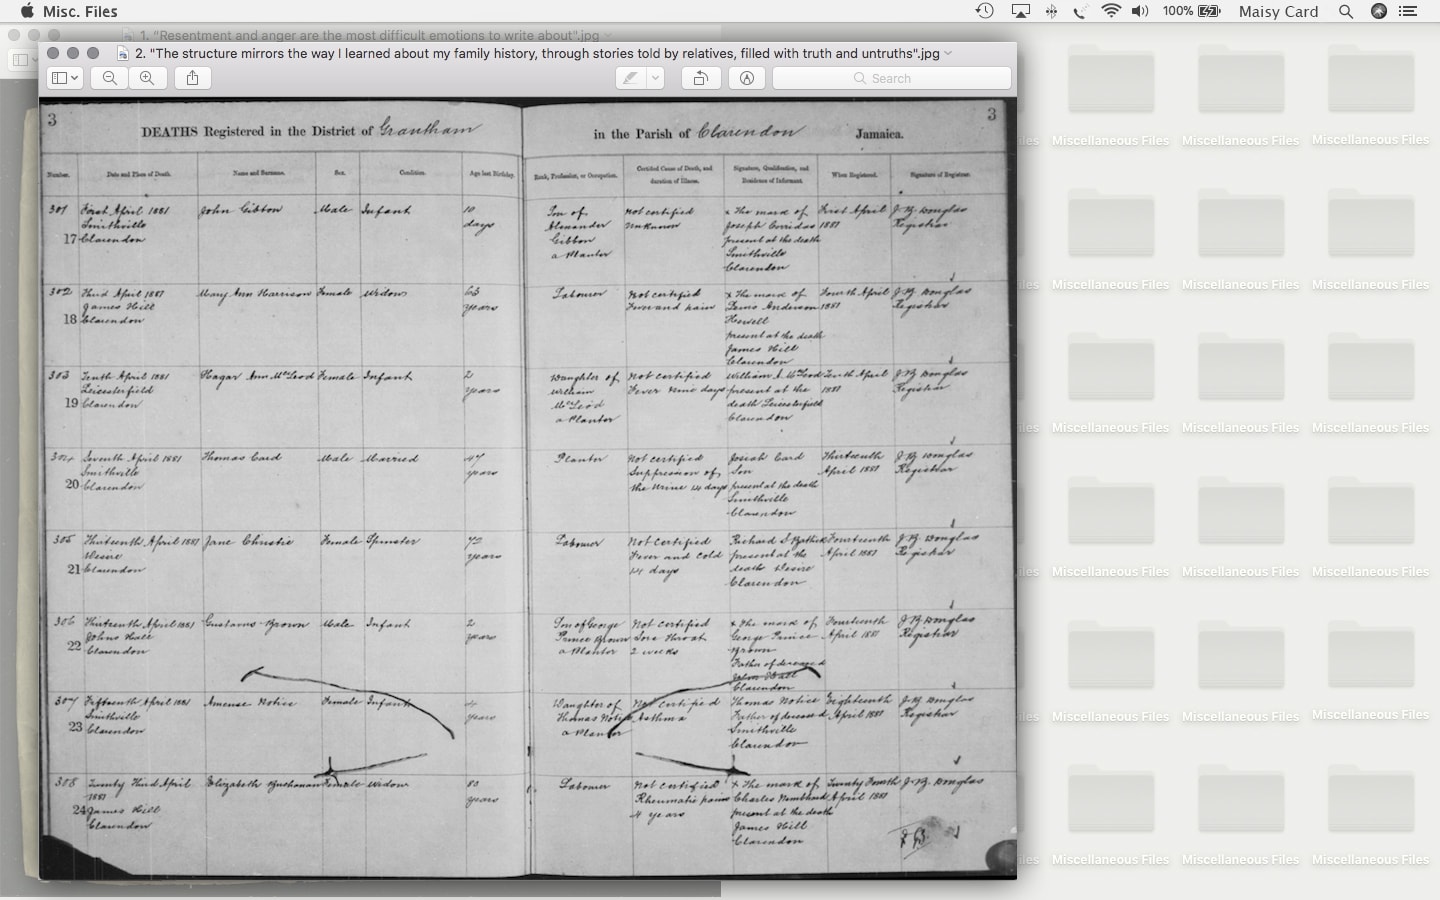 Misc. Files
100%
Maisy Card
1. "Resentment and anger are the most difficult emotions to write about".jpg
2. "The structure mirrors the way I learned about my family history, through stories told by relatives, filled with truth and untruths".jpg
Search
3
DEATHS Registered in the District of Grantham
in the Parish of Clarendon Jamaica.
3
Number. Date and Place of Death. Name and Surname. Sex. Condition. Age last Birthday. Rank, Profession, or Occupation. Certified Cause of Death, and duration of Illness. Signature, Qualification, and Residence of Informant. When Registered. Signature of Registrar.
301 First April 1881 John Gibbon Male Infant 10 Son of Not certified x The mark of First April J. B. Douglas
Smithville days Alexander Unknown Joseph 1881 Registrar
17 Clarendon Gibbon present at the death
a Planter Smithville
Clarendon
302 Third April 1881 Mary Ann Harrison Female Widow 63 Labourer Not certified x The mark of Fourth April J. B. Douglas
James Hill years Fever and pain Anderson 1881 Registrar
18 Clarendon
present at the death
James Hill
Clarendon
303 Tenth April 1881 Hagar Ann McLeod Female Infant 2 Daughter of Not certified William A. McLeod Tenth April J. B. Douglas
Leicesterfield years William Fever nine days present at the 1881 Registrar
19 Clarendon McLeod death Leicesterfield
a Planter Clarendon
304 Seventh April 1881 Thomas Card Male Married 47 Planter Not certified Josiah Card Thirteenth J. B. Douglas
Smithville years Suppression of Son April 1881 Registrar
20 Clarendon the Urine 14 days present at the death
Smithville
Clarendon
305 Thirteenth April 1881 Jane Christie Female Spinster 72 Labourer Not certified Richard S. Fourteenth J. B. Douglas
Desire years Fever and cold present at the April 1881 Registrar
21 Clarendon 14 days death Desire
Clarendon
306 Thirteenth April 1881 Gustavus Brown Male Infant 2 Son of George Not certified x The mark of Fourteenth J. B. Douglas
Johns Hall years Prince Brown Sore Throat George Prince April 1881 Registrar
22 Clarendon a Planter 2 weeks Brown
Father of deceased
John Hall
Clarendon
307 Fifteenth April 1881 Notice Female Infant 4 Daughter of Not certified Thomas Notice Eighteenth J. B. Douglas
Smithville years Thomas Notice Asthma Father of deceased April 1881 Registrar
23 Clarendon a Planter Smithville
Clarendon
308 Twenty Third April Elizabeth Buchanan Female Widow 80 Labourer Not certified x The mark of Twenty Fourth J. B. Douglas
1881 years Rheumatic pains Charles April 1881
24 James Hill 4 years present at the death
Clarendon James Hill
Clarendon
Miscellaneous Files Miscellaneous Files Miscellaneous Files
Miscellaneous Files Miscellaneous Files Miscellaneous Files
Miscellaneous Files Miscellaneous Files Miscellaneous Files
Miscellaneous Files Miscellaneous Files Miscellaneous Files
Miscellaneous Files Miscellaneous Files Miscellaneous Files
Miscellaneous Files Miscellaneous Files Miscellaneous Files